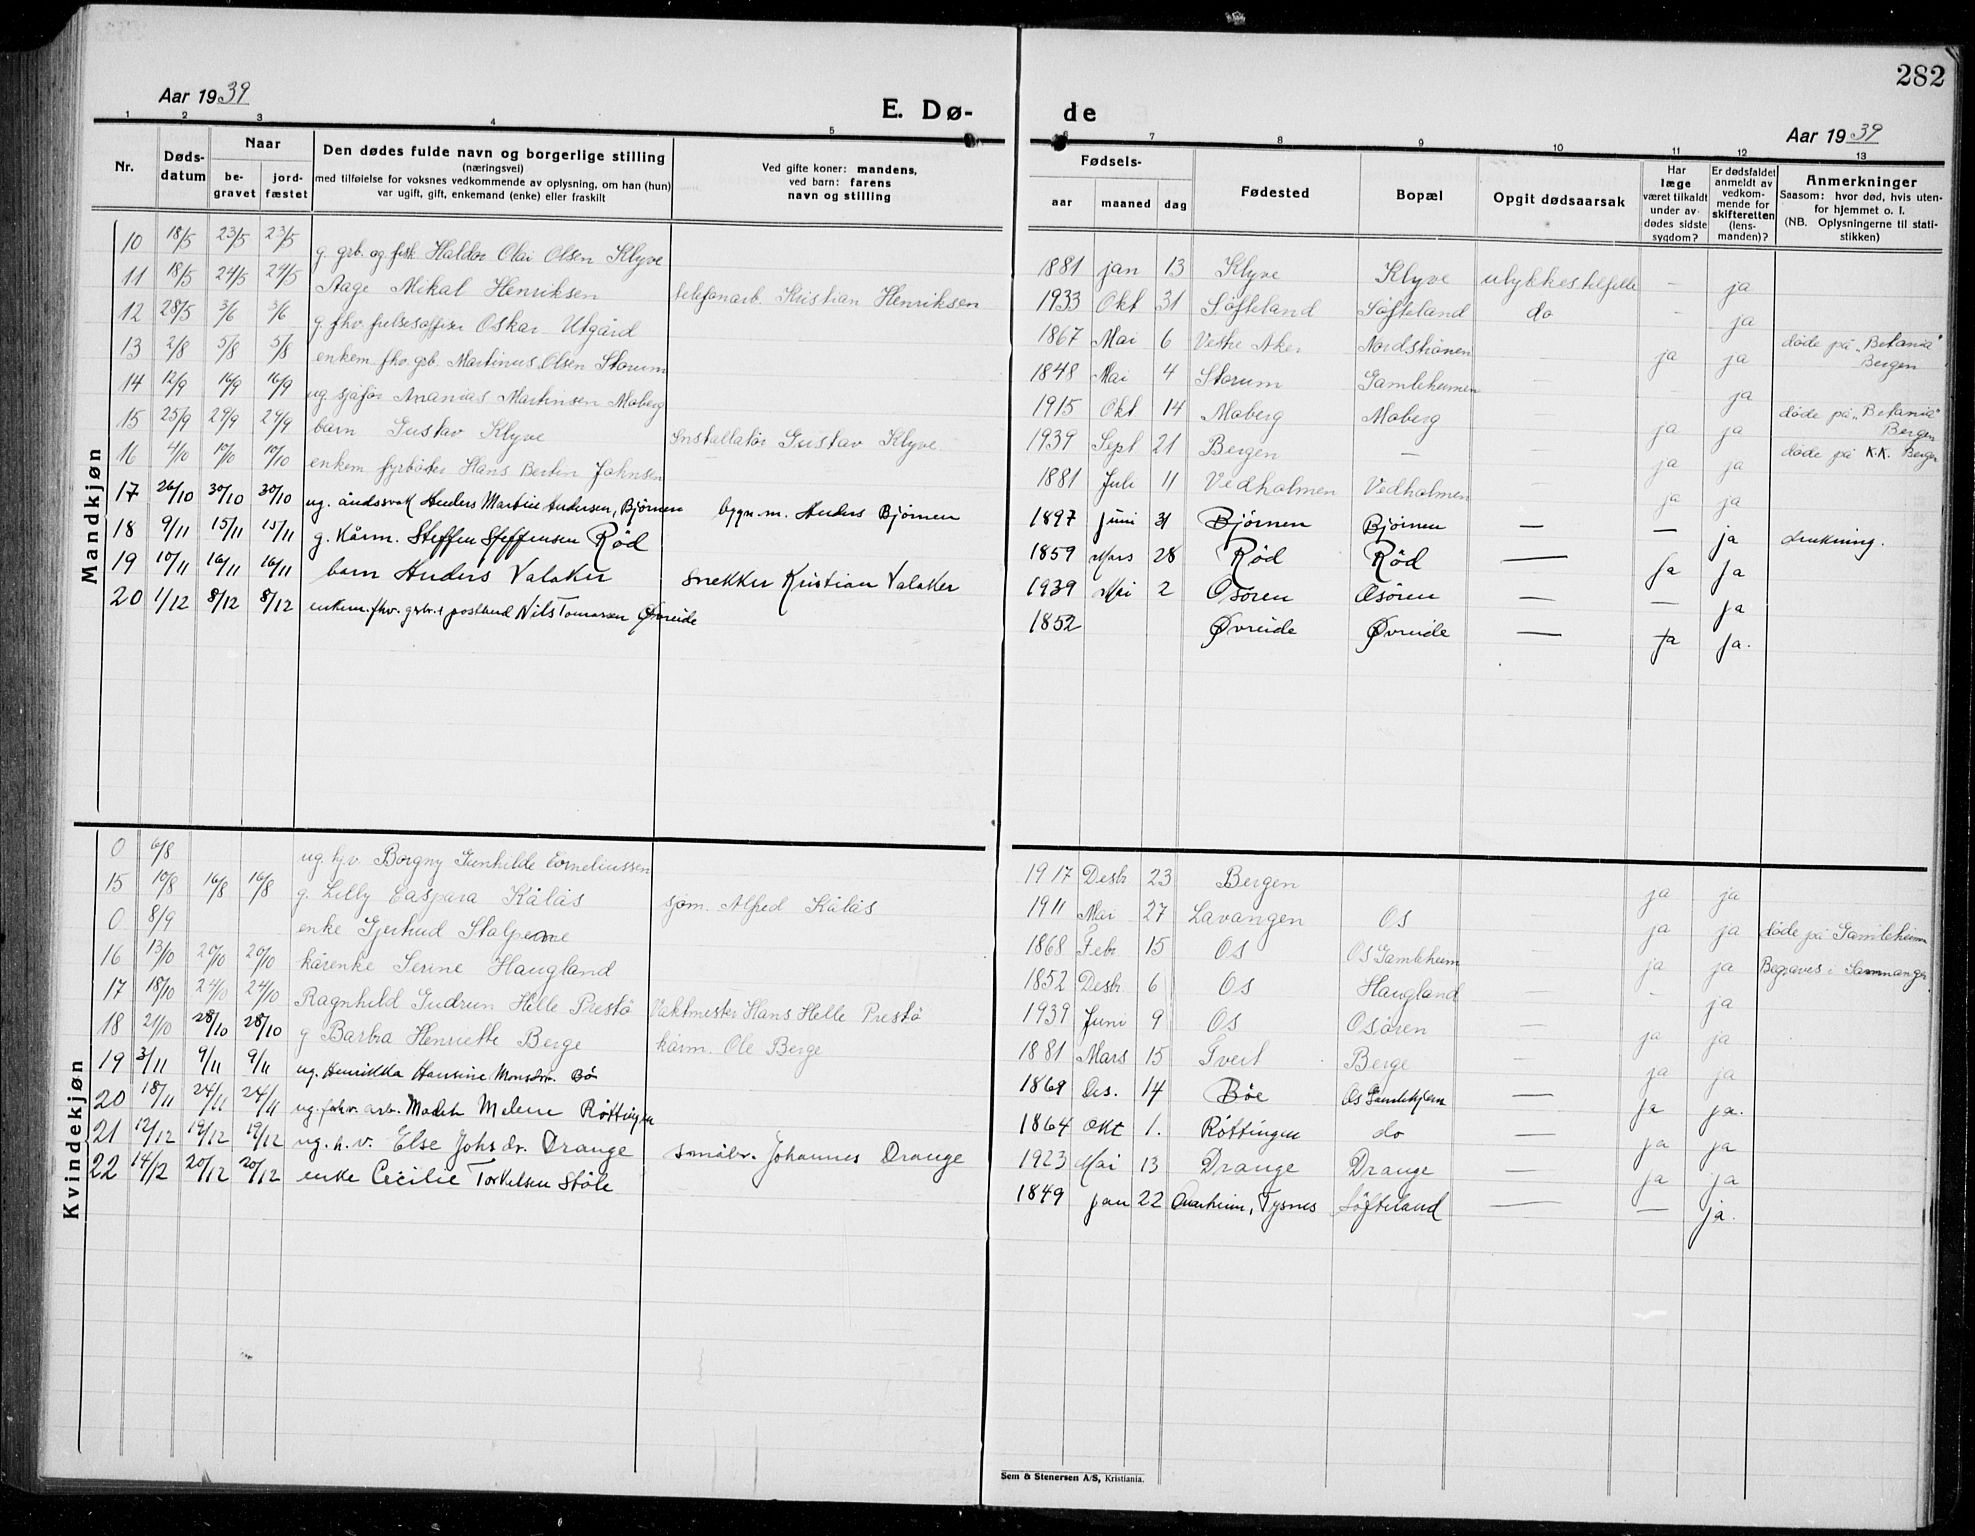 282
Aar 1939
E. Dø- de
Aar 1939
1 2 3 4 5 6 7 8 9 10 11 12 13
Nr.
Døds-datum
Naar
be-gravet
jord-fæstet
Den dødes fulde navn og borgerlige stilling
(næringsvei)
med tilføielse for voksnes vedkommende av oplysning, om han (hun)
var ugift, gift, enkemand (enke) eller fraskilt
Ved gifte koner: mandens,
ved barn: farens
navn og stilling
Fødsels-
aar maaned dag
Fødested
Bopæl
Opgit dødsaarsak
Har læge været tilkaldt under av-dødes sidste sygdom?
Er dødsfaldet anmeldt av vedkom-mende for skifteretten (lens-manden)?
Anmerkninger
Saasom: hvor død, hvis uten-
for hjemmet o. l.
(NB. Oplysningerne til stati-
stikken)
Mandkjøn
10 18/5 23/5 23/5 g. grb. og fisk Haldor Olai Olsen Klyve 1881 jan 13 Klyve Klyve ulykkestilfelle - ja
11 18/5 24/5 24/5 Aage Mikal Henriksen telefonarb. Kristian Henriksen 1933 Okt 31 Søfteland Søfteland do - ja
12 28/5 3/6 3/6 g. fhv. frelsesoffiser Oskar Utgård 1867 Mai 6 Vestre Aker Nordstrønen — ja ja døde på "Betania" Bergen
13 2/8 5/8 5/8 enkem. fhv. grb. Martinus Olsen Storum 1848 Mai 4 Storum Gamleheimen — - ja
14 12/9 16/9 16/9 ug. sjåfør Ananias Martinsen Moberg 1915 Okt 14 Moberg Moberg — ja ja døde på "Betania" Bergen
15 25/9 29/9 29/9 barn Gustav Klyve Installatør Gustav Klyve 1939 Sept 21 Bergen — — ja ja døde på K.K. Bergen
16 4/10 10/10 10/10 enkem fyrbøter Hans Bertin Johnsen 1881 Juli 11 Vedholmen Vedholmen — ja ja
17 26/10 30/10 30/10 ug. åndssvak Anders Martin Andersen, Bjørnen bygn.m. Anders Bjørnen 1897 juni Bjørnen Bjørnen — — ja drukning.
18 9/11 15/11 15/11 g. kårm. Steffen Steffensen Rød 1859 Mars 28 Rød Rød — ja ja
19 10/11 16/11 16/11 barn Anders Valaker snekker Kristian Valaker 1939 Mai 2 Osøren Osøren — — ja
20 1/12 8/12 8/12 enkem. fhv. grb. & postbud Nils Tomassen Øvreide 1852 Øvreide Øvreide — ja ja.
Kvindekjøn
0 6/8 ug. hj.v. Borgny Gunhilde Corneliussen 1917 Desbr 23 Bergen ja ja
15 10/8 16/8 16/8 g. Lilly Caspara Kålås sjøm. Alfred Kålås 1911 Mai 27 Lavangen Os ja ja døde på Gamleheimen
0 8/9 enke Gjertrud 1868 Febr 15 Os Os Gamleheim — ja ja Begraves i Samnanger
16 13/10 20/10 20/10 kårenke Serine Haugland 1852 Desbr 6 Os Haugland — - ja
17 18/10 24/10 24/10 Ragnhild Gudrun Helle Prestø Vaktmester Hans Helle Prestø 1939 Juni 9 Os Osøren — ja ja
18 21/10 28/10 28/10 g Barbra Henriette Berge kårm. Ole Berge 1881 Mars 15 Tveit Berge — ja ja
19 3/11 9/11 9/11 ug. Henrikka Hansine Monsdtr. Bø 1869 Des. 14 Bøe Os Gamlehjem — ja ja.
20 18/11 24/11 24/11 ug. forhv. arb. Malene Røttingen 1864 Okt 1. Røttingen do — ja ja
21 12/12 19/12 19/12 ug. h.v. Else Johs.dr. Drange småbr. Johannes Drange 1923 Mai 13 Drange Drange — ja ja
22 14/12 20/12 20/12 enke Cecilie Torkelsen Støle 1849 jan 22 Onarheim, Tysnes Søfteland — — ja.
Sem & Stenersen A/S, Kristiania.